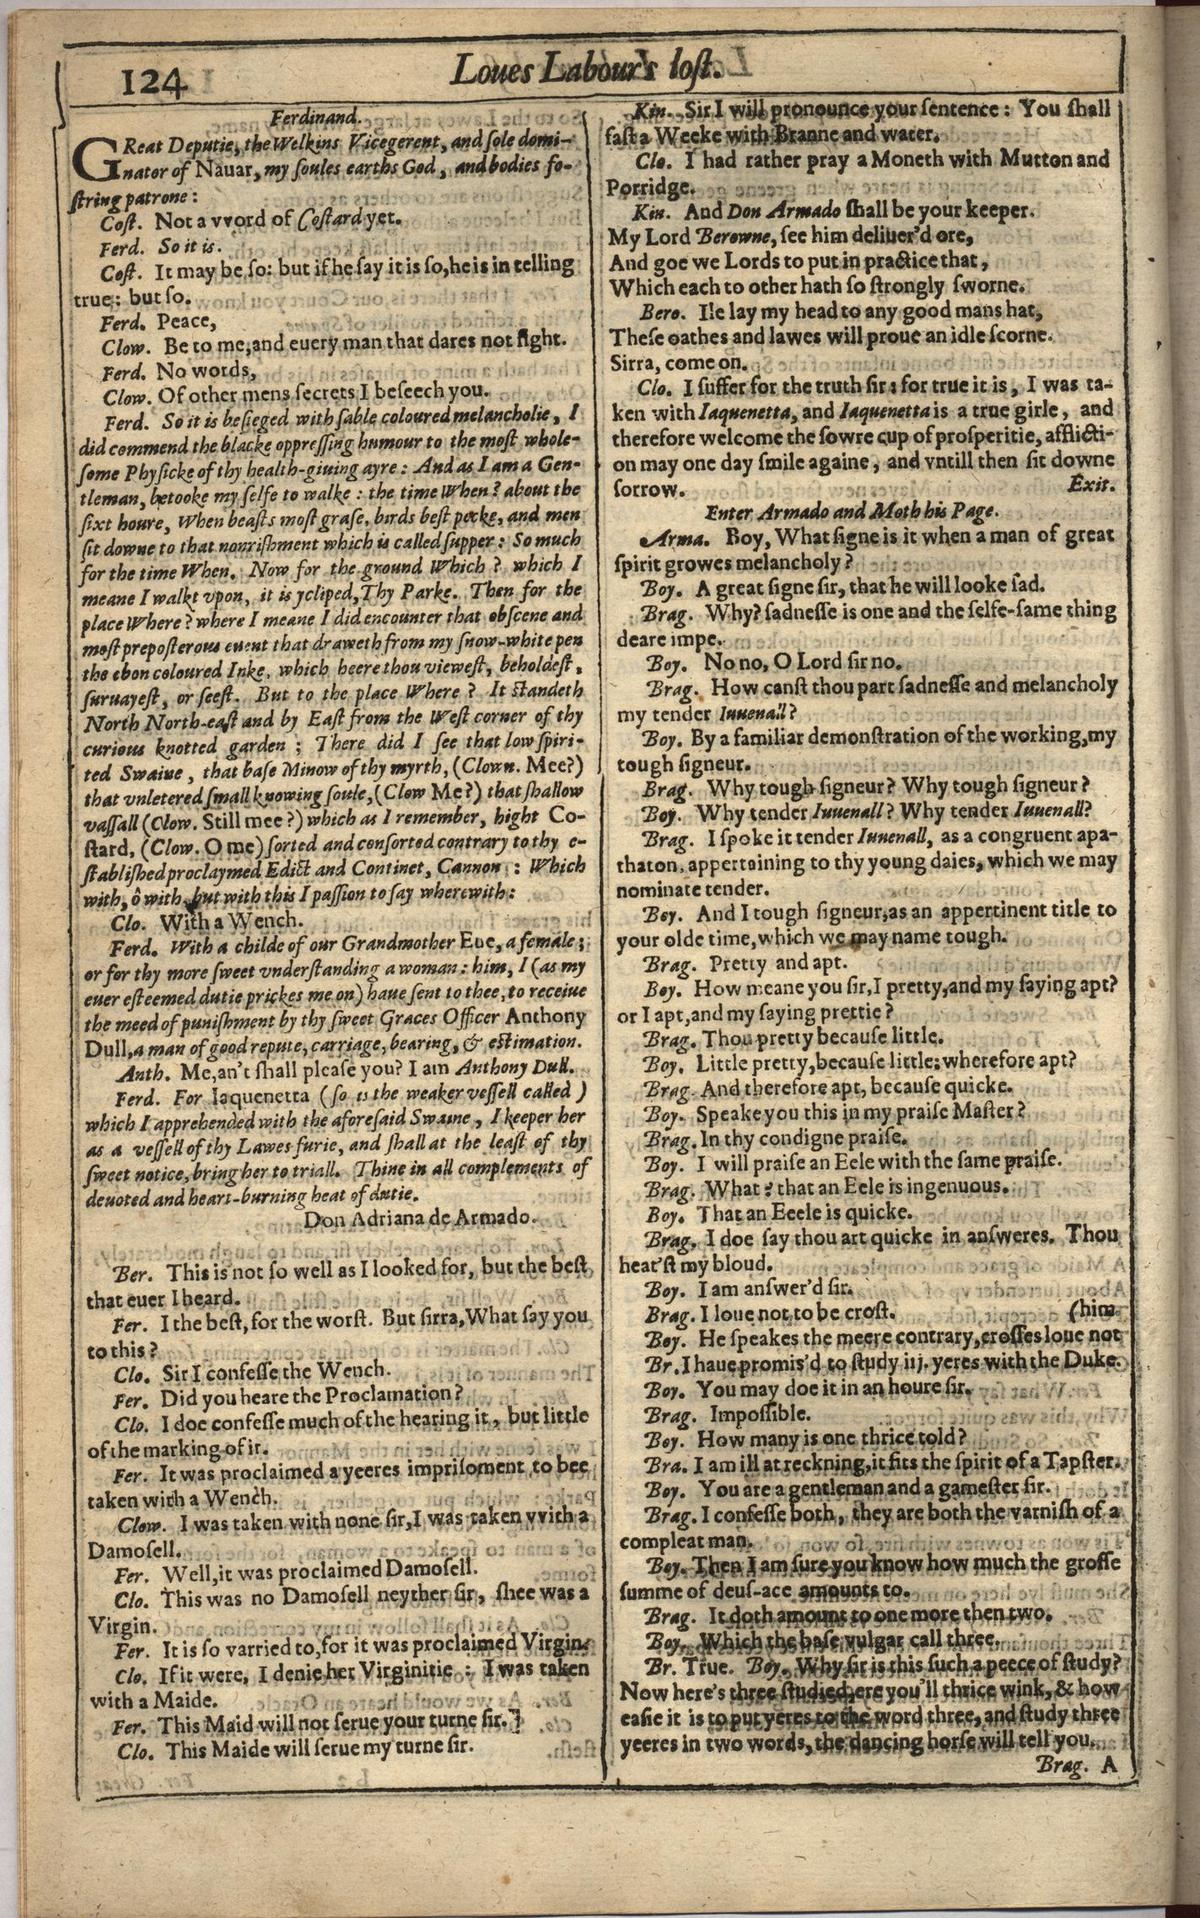 124
Loues Labour's lost.
Ferdinand.
GReat Deputie, the Welkins Vicegerent, and sole domi-
nator of Nauar, my soules earths God, and bodies fo-
string patrone:
Cost. Not a vvord of Costard yet.
Ferd. So it is.
Cost. It may be so: but if he say it is so, he is in telling
true: but so.
Ferd. Peace,
Clow. Be to me, and euery man that dares not fight.
Ferd. No words,
Clow. Of other mens secrets I beseech you.
Ferd. So it is besieged with sable coloured melancholie, I
did commend the blacke oppressing humour to the most whole-
some Physicke of thy health-giuing ayre: And as I am a Gen-
tleman, betooke my selfe to walke: the time When? about the
sixt houre, When beasts most grase, birds best pecke, and men
sit downe to that nourishment which is called supper: So much
for the time When. Now for the ground Which? which I
meane I walkt vpon, it is ycliped, Thy Parke. Then for the
place Where? where I meane I did encounter that obscene and
most preposterous euent that draweth from my snow-white pen
the ebon coloured Inke, which heere thou viewest, beholdest,
suruayest, or seest. But to the place Where? It standeth
North North-east and by East from the West corner of thy
curious knotted garden; There did I see that low spiri-
ted Swaine, that base Minow of thy myrth, (Clown. Mee?)
that vnletered small knowing soule, (Clow Me?) that shallow
vassall (Clow. Still mee?) which as I remember, hight Co-
stard, (Clow. O me) sorted and consorted contrary to thy e-
stablished proclaymed Edict and Continet, Cannon: Which
with, ô with, but with this I passion to say wherewith:
Clo. With a Wench.
Ferd. With a childe of our Grandmother Eue, a female;
or for thy more sweet vnderstanding a woman: him, I (as my
euer esteemed dutie prickes me on) haue sent to thee, to receiue
the meed of punishment by thy sweet Graces Officer Anthony
Dull, a man of good repute, carriage, bearing, & estimation.
Anth. Me, an't shall please you? I am Anthony Dull.
Ferd. For Iaquenetta (so is the weaker vessell called)
which I apprehended with the aforesaid Swaine, I keeper her
as a vessell of thy Lawes furie, and shall at the least of thy
sweet notice, bring her to triall. Thine in all complements of
deuoted and heart-burning heat of dutie.
Don Adriana de Armado.
Ber. This is not so well as I looked for, but the best
that euer I heard.
Fer. I the best, for the worst. But sirra, What say you
to this?
Clo. Sir I confesse the Wench.
Fer. Did you heare the Proclamation?
Clo. I doe confesse much of the hearing it, but little
of the marking of it.
Fer. It was proclaimed a yeeres imprisoment to bee
taken with a Wench.
Clow. I was taken with none sir, I was taken vvith a
Damosell.
Fer. Well, it was proclaimed Damosell.
Clo. This was no Damosell neyther sir, shee was a
Virgin.
Fer. It is so varried to, for it was proclaimed Virgin.
Clo. If it were, I denie her Virginitie: I was taken
with a Maide.
Fer. This Maid will not serue your turne sir.
Clo. This Maide will serue my turne sir.
Kin. Sir I will pronounce your sentence: You shall
fast a Weeke with Branne and water.
Clo. I had rather pray a Moneth with Mutton and
Porridge.
Kin. And Don Armado shall be your keeper.
My Lord Berowne, see him deliuer'd ore,
And goe we Lords to put in practice that,
Which each to other hath so strongly sworne.
Bero. Ile lay my head to any good mans hat,
These oathes and lawes will proue an idle scorne.
Sirra, come on.
Clo. I suffer for the truth sir: for true it is, I was ta-
ken with Iaquenetta, and Iaquenetta is a true girle, and
therefore welcome the sowre cup of prosperitie, afflicti-
on may one day smile againe, and vntill then sit downe
sorrow. Exit.
Enter Armado and Moth his Page.
Arma. Boy, What signe is it when a man of great
spirit growes melancholy?
Boy. A great signe sir, that he will looke sad.
Brag. Why? sadnesse is one and the selfe-same thing
deare impe.
Boy. No no, O Lord sir no.
Brag. How canst thou part sadnesse and melancholy
my tender Iuuenall?
Boy. By a familiar demonstration of the working, my
tough signeur.
Brag. Why tough signeur? Why tough signeur?
Boy. Why tender Iuuenall? Why tender Iuuenall?
Brag. I spoke it tender Iuuenall, as a congruent apa-
thaton, appertaining to thy young daies, which we may
nominate tender.
Boy. And I tough signeur, as an appertinent title to
your olde time, which we may name tough.
Brag. Pretty and apt.
Boy. How meane you sir, I pretty, and my saying apt?
or I apt, and my saying prettie?
Brag. Thou pretty because little.
Boy. Little pretty, because little: wherefore apt?
Brag. And therefore apt, because quicke.
Boy. Speake you this in my praise Master?
Brag. In thy condigne praise.
Boy. I will praise an Eele with the same praise.
Brag. What? that an Eele is ingenuous.
Boy. That an Eeele is quicke.
Brag. I doe say thou art quicke in answeres. Thou
heat'st my bloud.
Boy. I am answer'd sir.
Brag. I loue not to be crost. (him
Boy. He speakes the meere contrary, crosses loue not
Br. I haue promis'd to study iij. yeres with the Duke.
Boy. You may doe it in an houre sir.
Brag. Impossible.
Boy. How many is one thrice told?
Bra. I am ill at reckning, it fits the spirit of a Tapster.
Boy. You are a gentleman and a gamester sir.
Brag. I confesse both, they are both the varnish of a
compleat man.
Boy. Then I am sure you know how much the grosse
summe of deus-ace amounts to.
Brag. It doth amount to one more then two.
Boy. Which the base vulgar call three.
Br. True. Boy. Why sir is this such a peece of study?
Now here's three studied, ere you'll thrice wink, & how
easie it is to put yeres to the word three, and study three
yeeres in two words, the dancing horse will tell you.
Brag. A